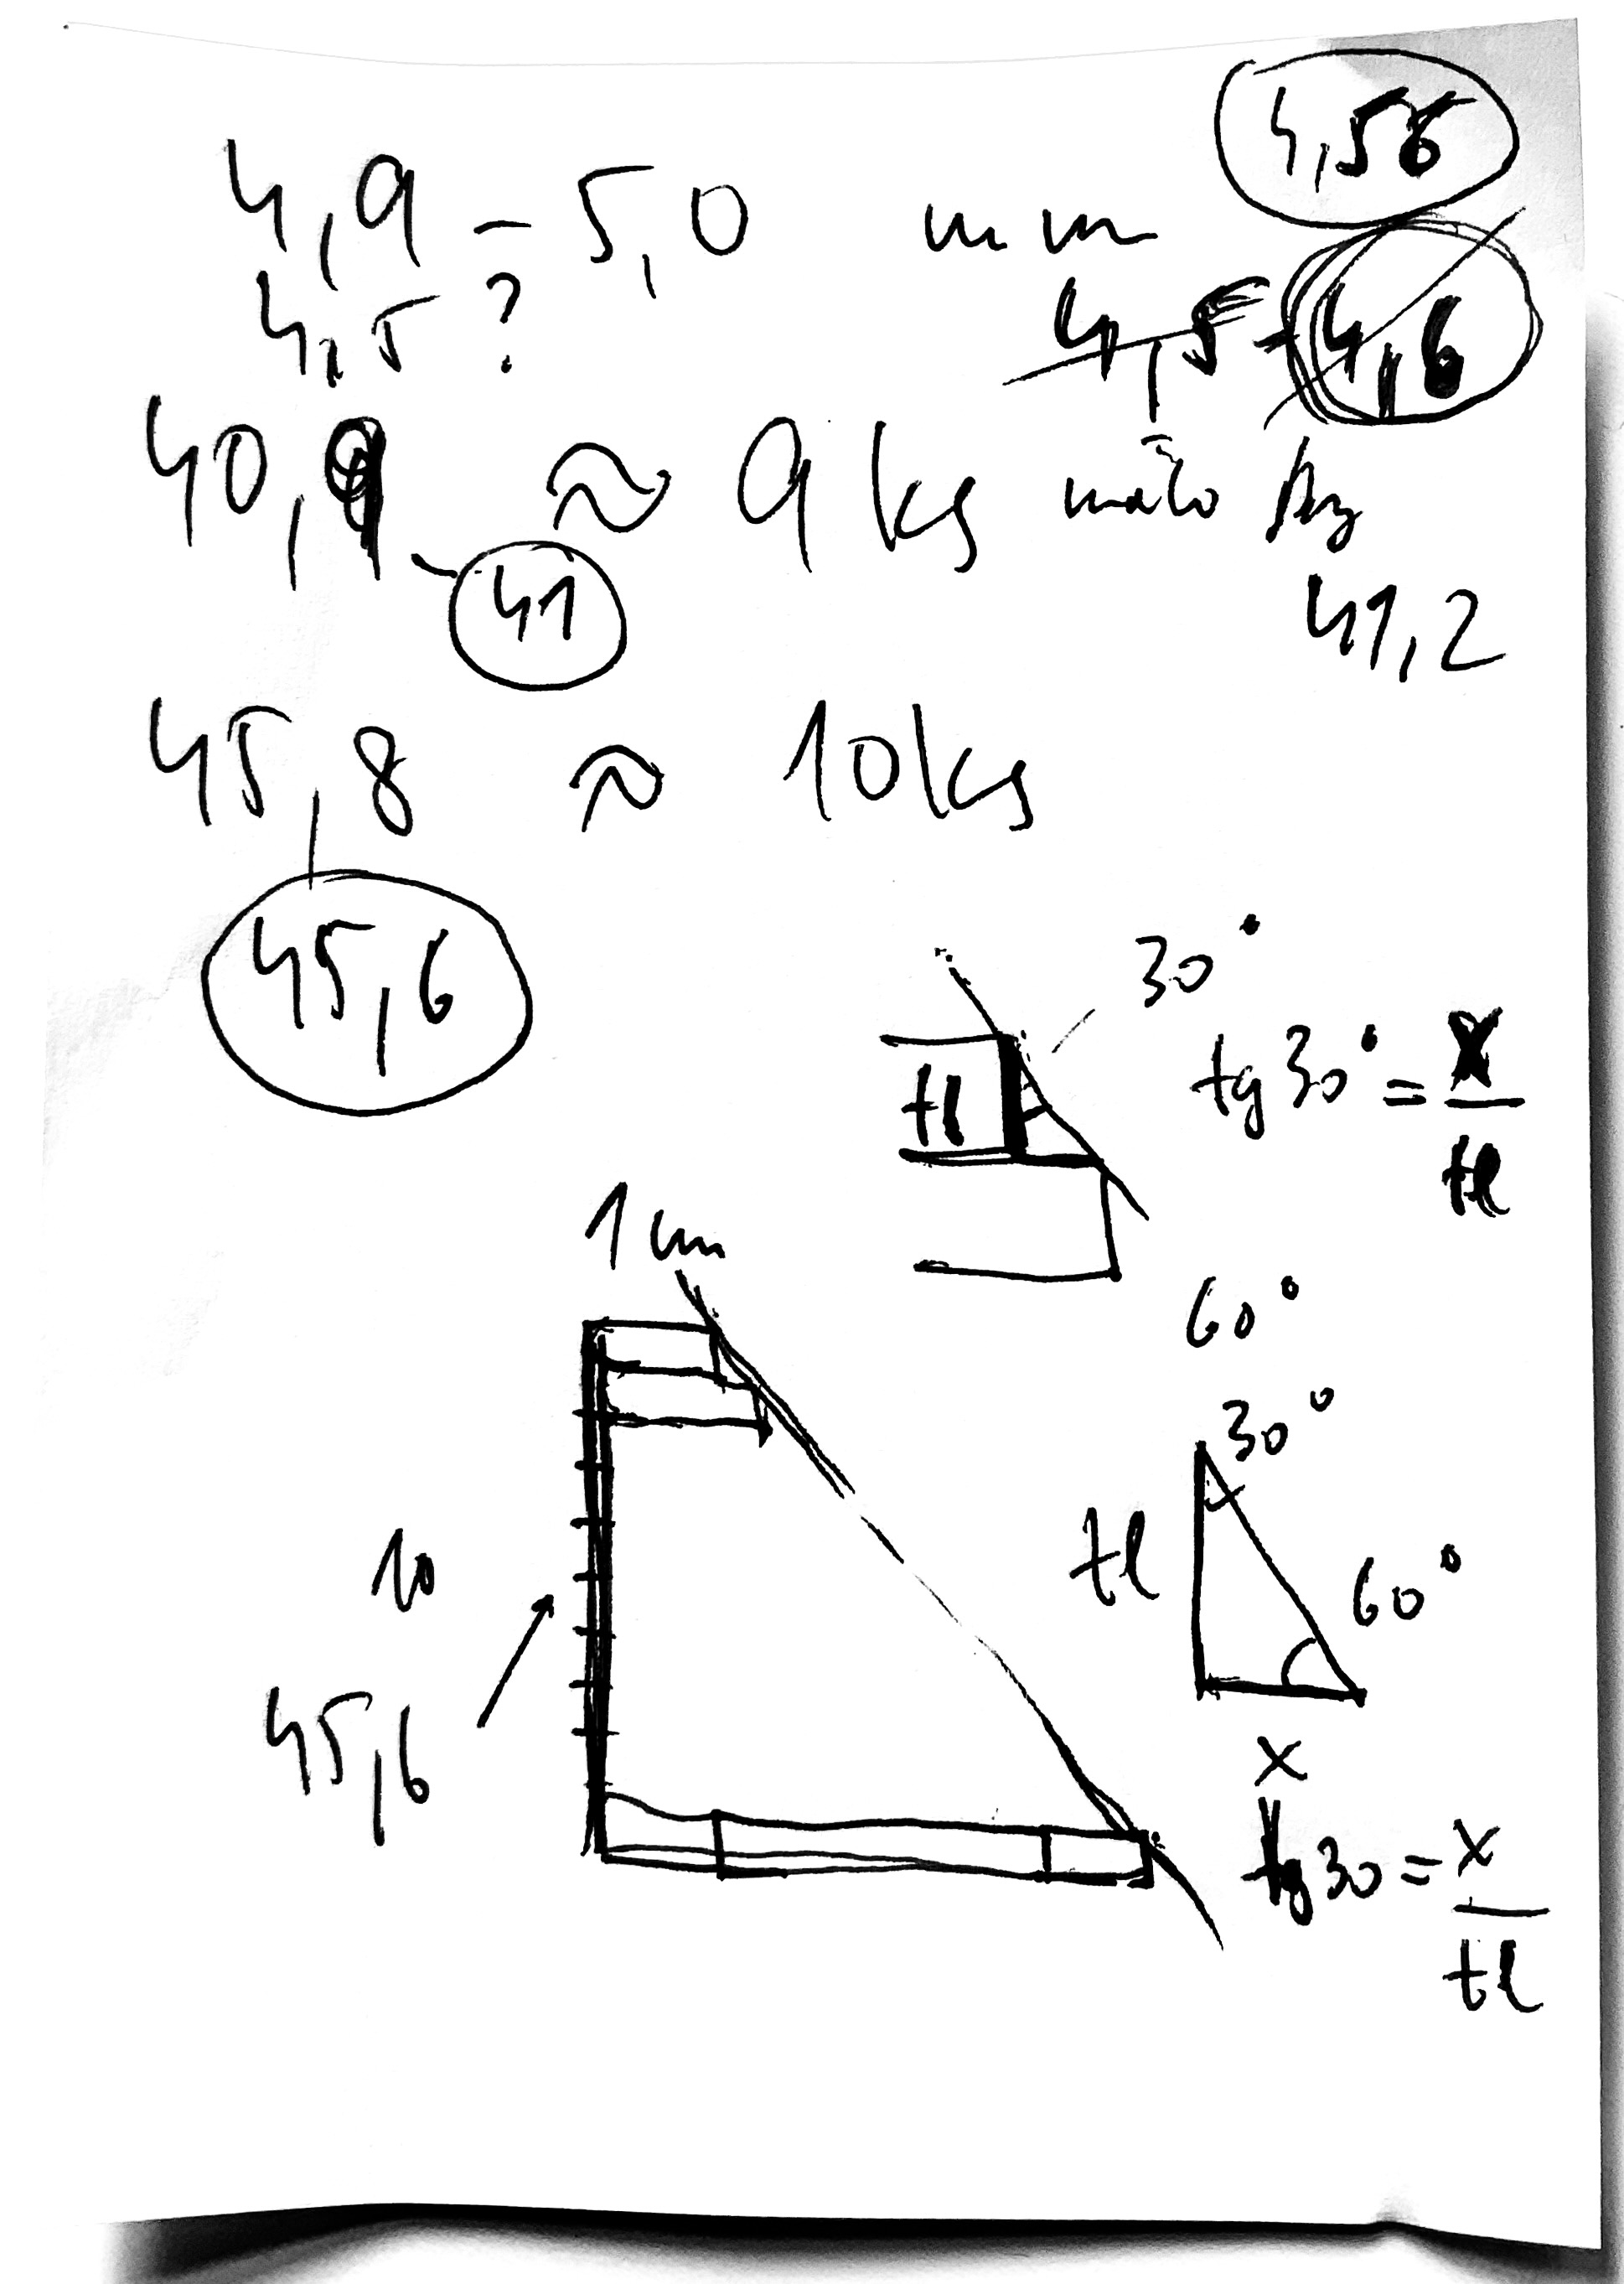 4,56
4,9 - 5,0 mm
4,5 ?
4,5 - 4,6
40,9 ≈ 9 ks málo by
41
41,2
45,8 ≈ 10 ks
45,6
30°
tl
tg 30° = x / tl
1 cm
60°
30°
10
tl
60°
45,6
x
tg 30 = x / tl